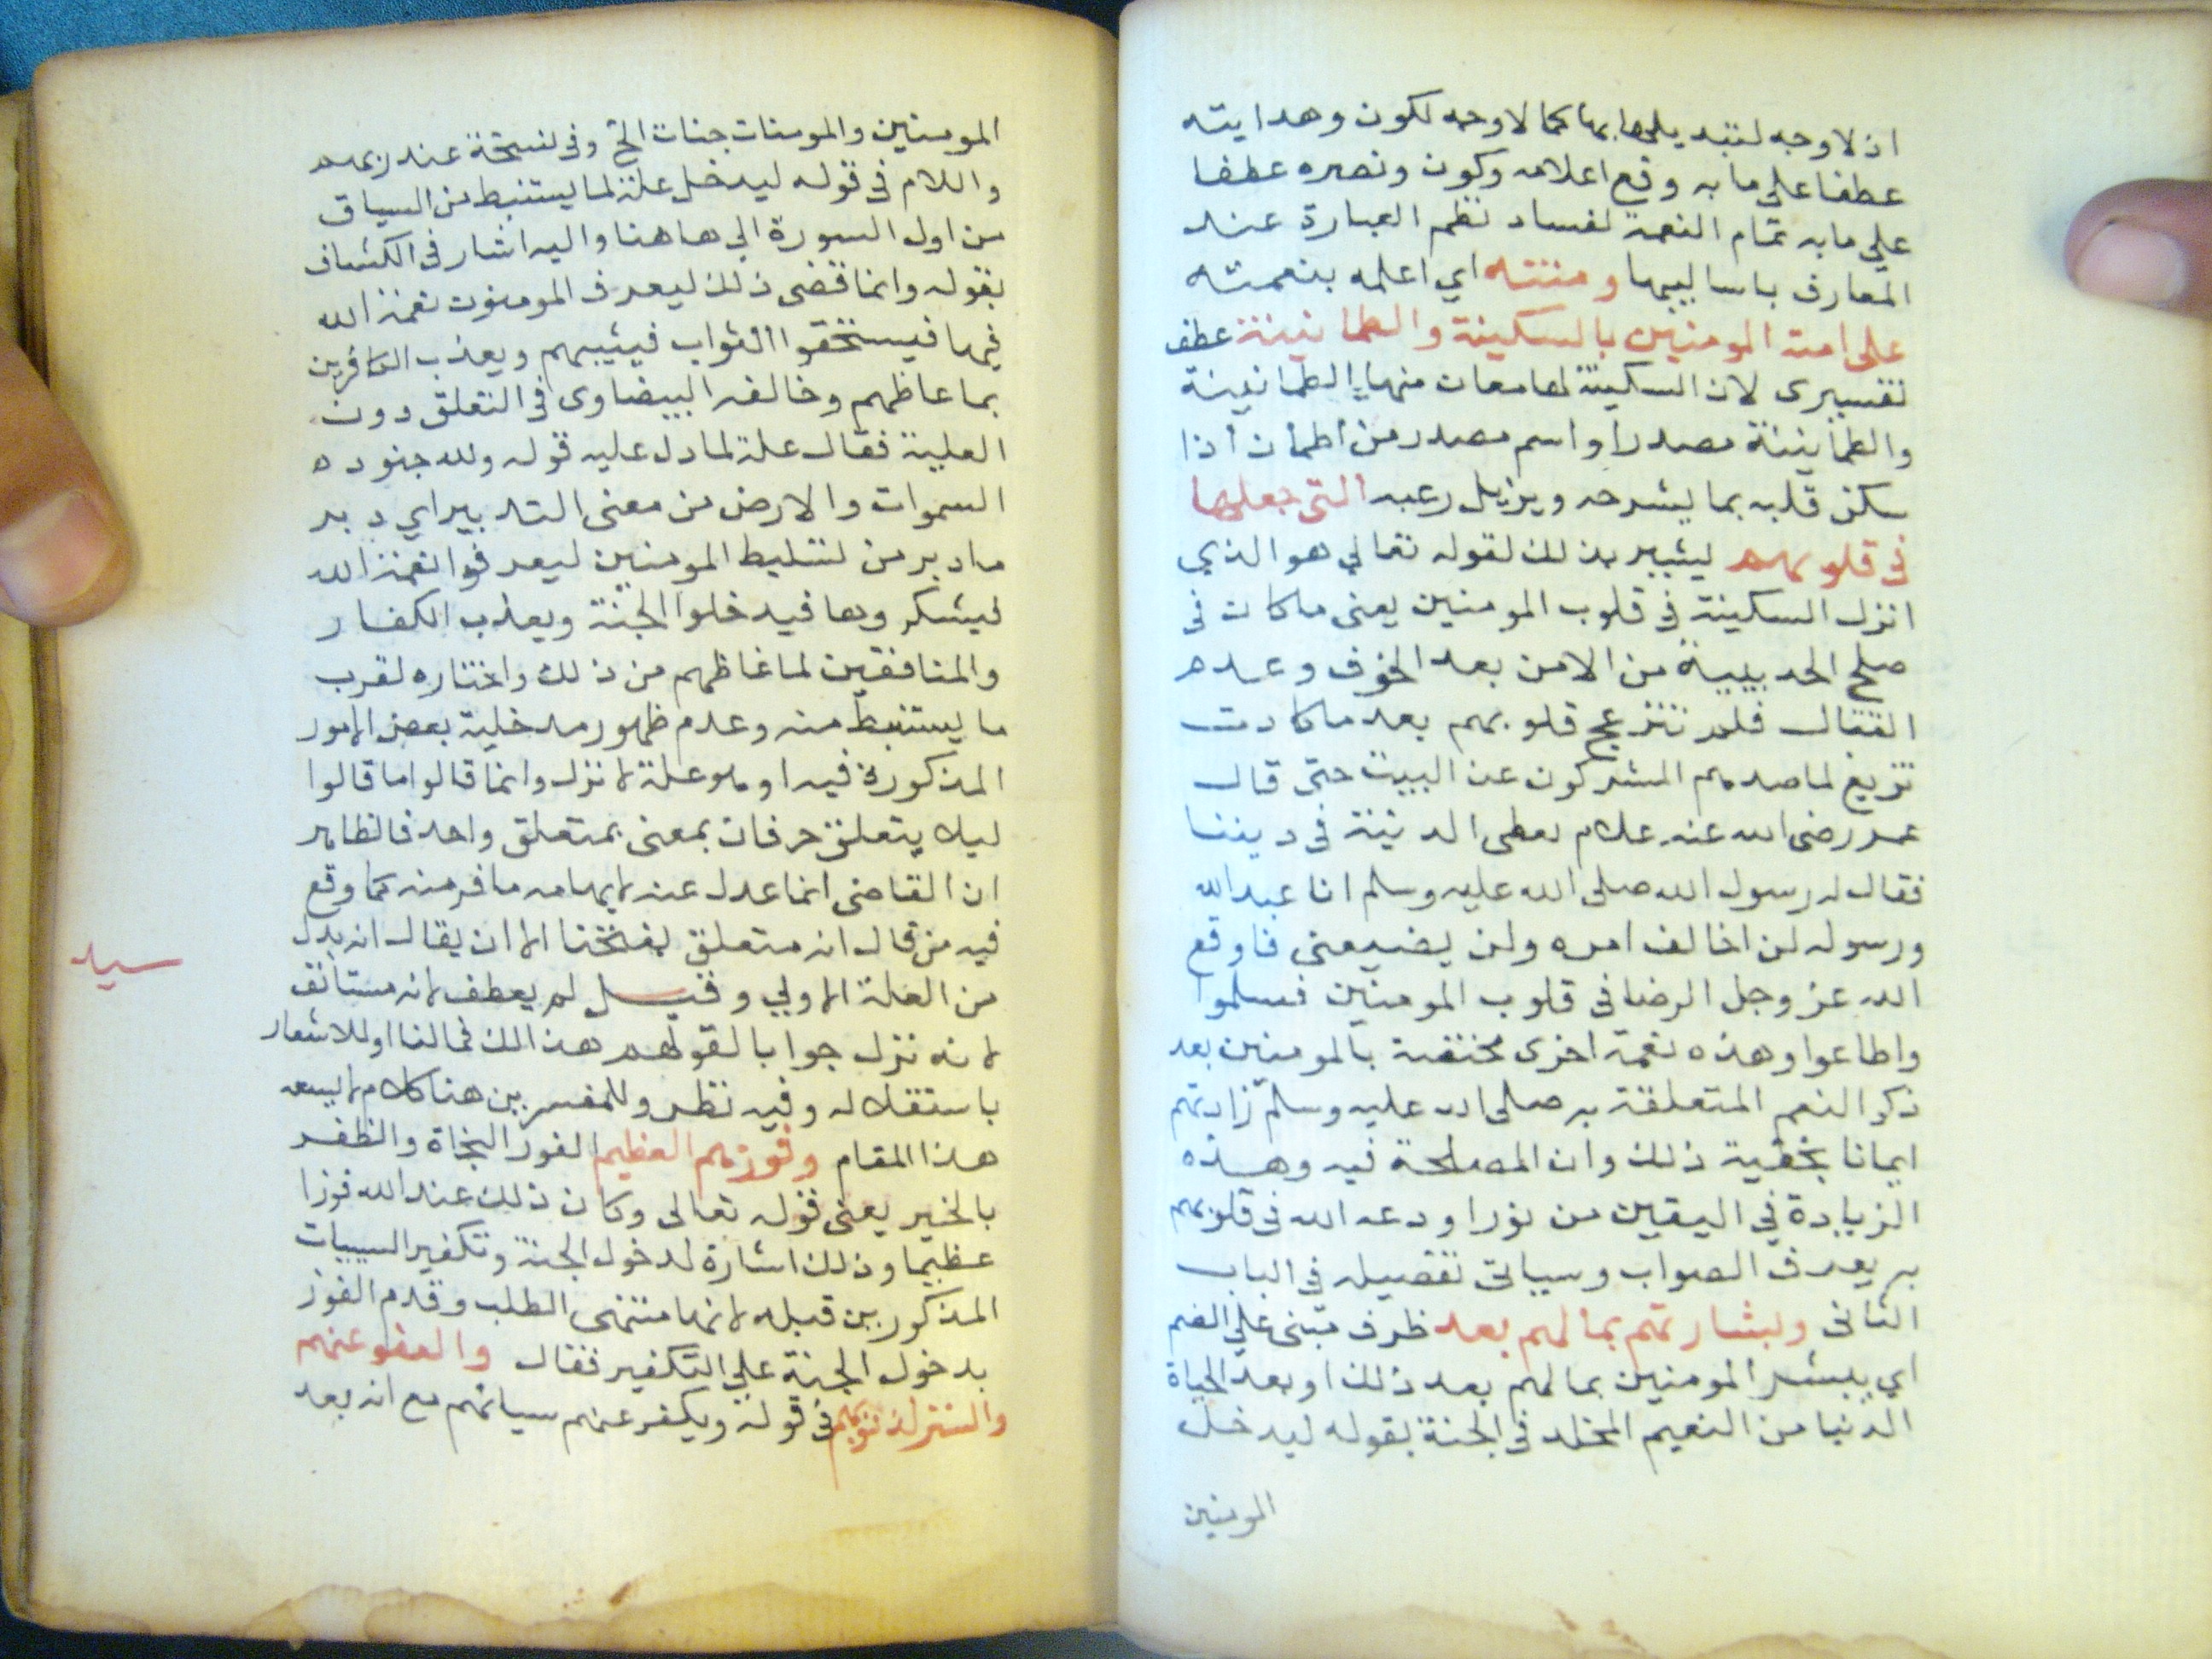 اذ لا وجه لتبديلها بها كما لا وجه لكون وهدايته
عطفا على ما به وقع اعلامه وكون ونصره عطفا
علي ما به تمام النعمة لفساد نظم العبارة عند
العارف باساليبها ومنته اي اعلمه بنعمته
على امته المومنين بالسكينة والطمانينة عطف
تفسيرى لان السكينة لها معان منها الطمانينة
والطمانينة مصدر او اسم مصدر من اطمأن اذا
سكن قلبه بما يشرحه ويزيل رعبه التي جعلها
في قلوبهم ليشير بذلك لقوله تعالي هو الذي
انزل السكينة في قلوب المومنين يعني ما كان في
صلح الحديبية من الامن بعد الخوف وعدم
القتال فلم تنزعج قلوبهم بعد ما كادت
تزيغ لما صدهم المشركون عن البيت حتى قال
عمر رضي الله عنه علام نعطى الدنية في ديننا
فقال له رسول الله صلى الله عليه وسلم انا عبد الله
ورسوله لن اخالف امره ولن يضيعني فاوقع
الله عز وجل الرضا في قلوب المومنين فسلموا
واطاعوا وهذه نعمة اخرى مختصة بالمومنين بعد
ذكر النعم المتعلقة به صلى الله عليه وسلم زادتهم
ايمانا بحقية ذلك وان المصلحة فيه وهذه
الزيادة في اليقين من نور اودعه الله في قلوبهم
به يعرف الصواب وسياتى تفصيله في الباب
الثاني وبشارتهم بما لهم بعد ظرف مبنى علي الضم
اي يبشر المومنين بما لهم بعد ذلك او بعد الحياة
الدنيا من النعيم المخلد في الجنة بقوله ليدخل
المومنين
المومنين والمومنات جنات الخ وفي نسخة عند ربهم
واللام في قوله ليدخل علة لما يستنبط من السياق
من اول السورة الي هاهنا واليه اشار في الكشاف
بقوله وانما قضى ذلك ليعرف المومنون نعمة الله
فيها فيستحقوا الثواب فيثيبهم ويعذب الكافرين
بما غاظهم وخالفه البيضاوى في التعلق دون
العلية فقال علة لما دل عليه قوله ولله جنود
السموات والارض من معنى التدبير اي دبر
ما دبر من تسليط المومنين ليعرفوا نعمة الله
ليشكروها فيدخلوا الجنة ويعذب الكفار
والمنافقين لما غاظهم من ذلك واختاره لقرب
ما يستنبط منه وعدم ظهور مدخلية بعض الامور
المذكورة فيه او هو علة لانزل وانما قالوا ما قالوا
ليلا يتعلق حرفان بمعنى بمتعلق واحد فالظاهر
ان القاضى انما عدل عنه لايهامه ما فر منه كما وقع
فيه من قال انه متعلق بفتحنا الا ان يقال انه بدل
من العلة الاولي وقيل لم يعطف لانه مستانف
سيد
لانه نزل جوابا لقولهم هذا لك فما لنا او للاشعار
باستقلاله وفيه نظر وللمفسرين هنا كلام لا يسعه
هذا المقام وفوزهم العظيم الفوز النجاة والظفر
بالخير يعنى قوله تعالى وكان ذلك عند الله فوزا
عظيما وذلك اشارة لدخول الجنة وتكفير السييات
المذكورين قبله لانهما منتهى الطلب وقدم الفوز
بدخول الجنة علي التكفير فقال والعفو عنهم
والستر لذنوبهم في قوله ويكفر عنهم سياتهم مع انه بعد